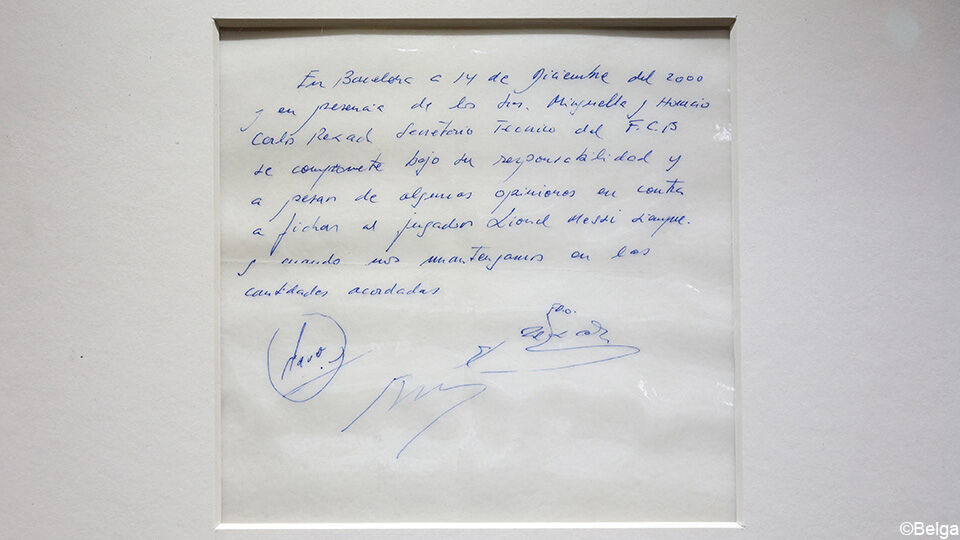 En Barcelona a 14 de Diciembre del 2000
y en presencia de los Srs. Minguella y Horacio
Carlos Rexach Secretario Tecnico del F.C.B
se compromete bajo su responsabilidad y
a pesar de algunas opiniones en contra
a fichar al jugador Lionel Messi siempre
y cuando nos mantengamos en las
cantidades acordadas
Fdo.
©Belga